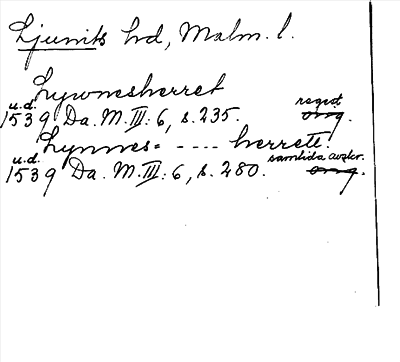 Ljunits hd, Malm. l.
Lywnesherret
u.d. regest
1539 Da. M. III: 6, s. 235. orig.
Lynnes= ---- herrett.
u.d. samtida avskr.
1539 Da. M. III: 6, s. 280. orig.